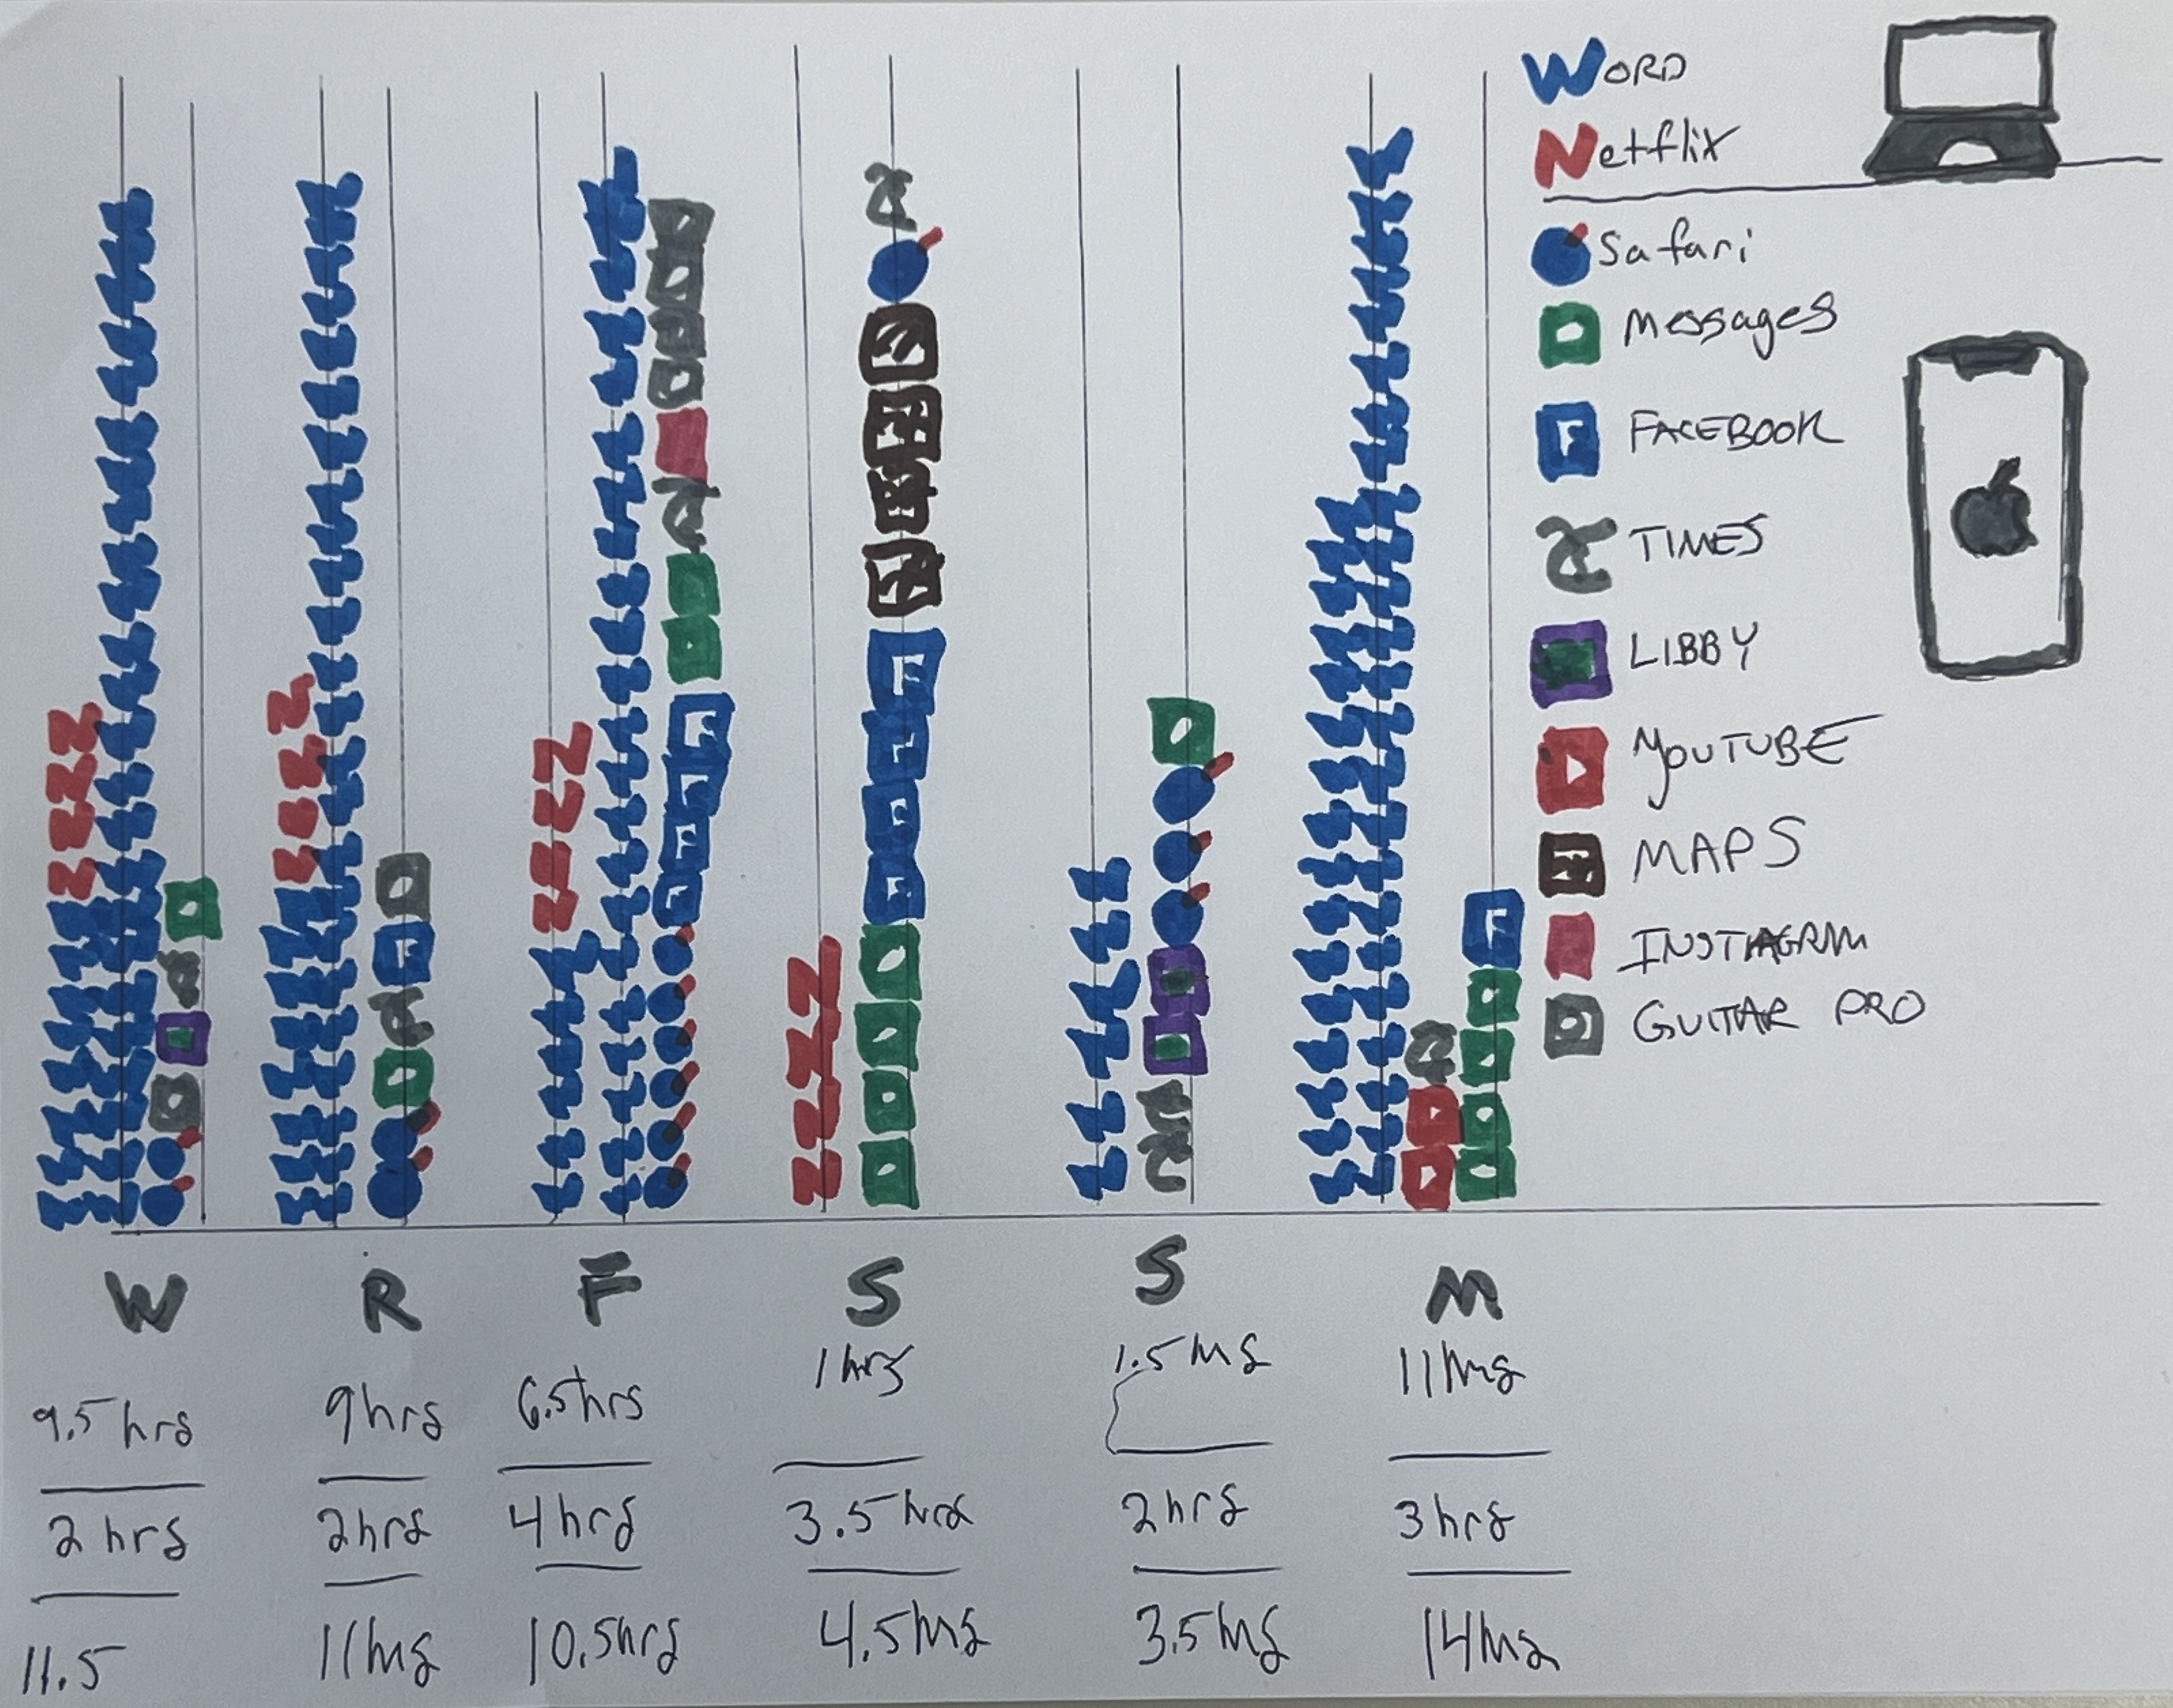 WORD
Netflix
Safari
Messages
FACEBOOK
TIMES
LIBBY
YOUTUBE
MAPS
INSTAGRAM
GUITAR PRO
W R F S S M
9.5 hrs 9hrs 6.5hrs 1 hrs 1.5 hrs 11hrs
2 hrs 2hrs 4hrs 3.5 hrs 2hrs 3hrs
11.5 11hrs 10.5hrs 4.5hrs 3.5hrs 14hrs